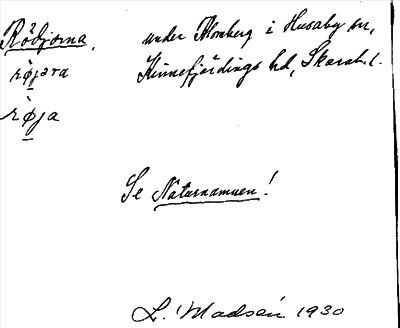 Rödjorna, under Blomberg i Husaby sn,
röjɔra Kinnefjärdings hd, Skarab. l.
röja
Se Naturnamnen!
L. Madsén 1930